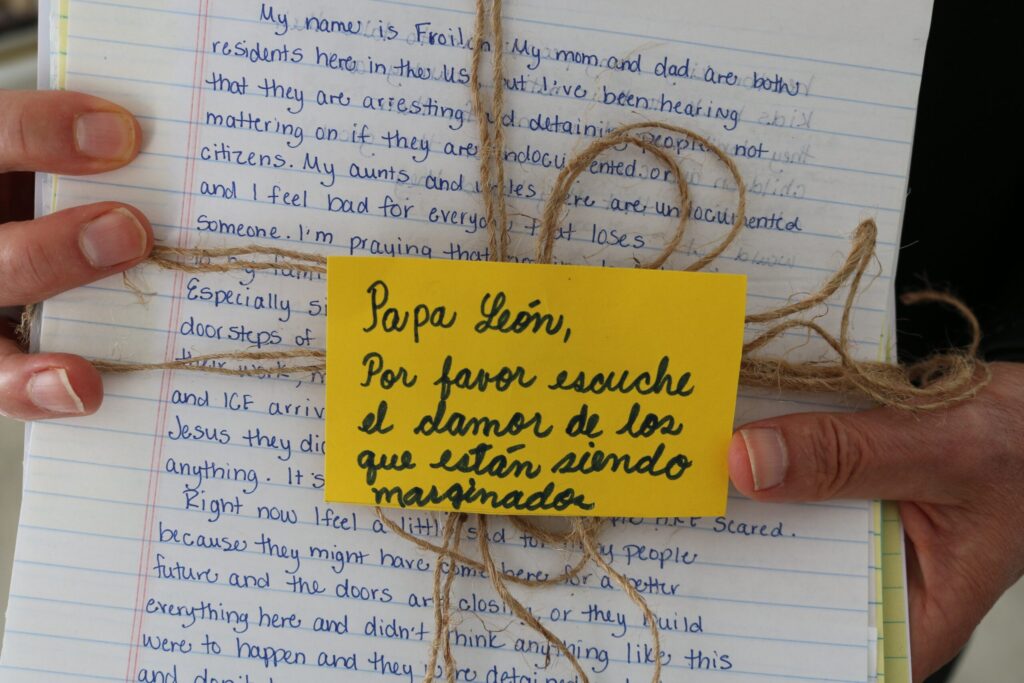 My name is Froilan. My mom and dad are both
residents here in the US but I've been hearing
that they are arresting and detaining people not
mattering on if they are undocumented or
citizens. My aunts and uncles here are undocumented
and I feel bad for everyone that loses
someone. I'm praying that
to my
Especially
doorsteps of
their work,
and ICE
Jesus they
anything. It's
scared.
Right now I feel a little sad for my people
because they might have come here for a better
future and the doors are closing or they build
everything here and didn't think anything like this
were to happen and they were detained
and
Papa León,
Por favor escuche
el clamor de los
que están siendo
marginados